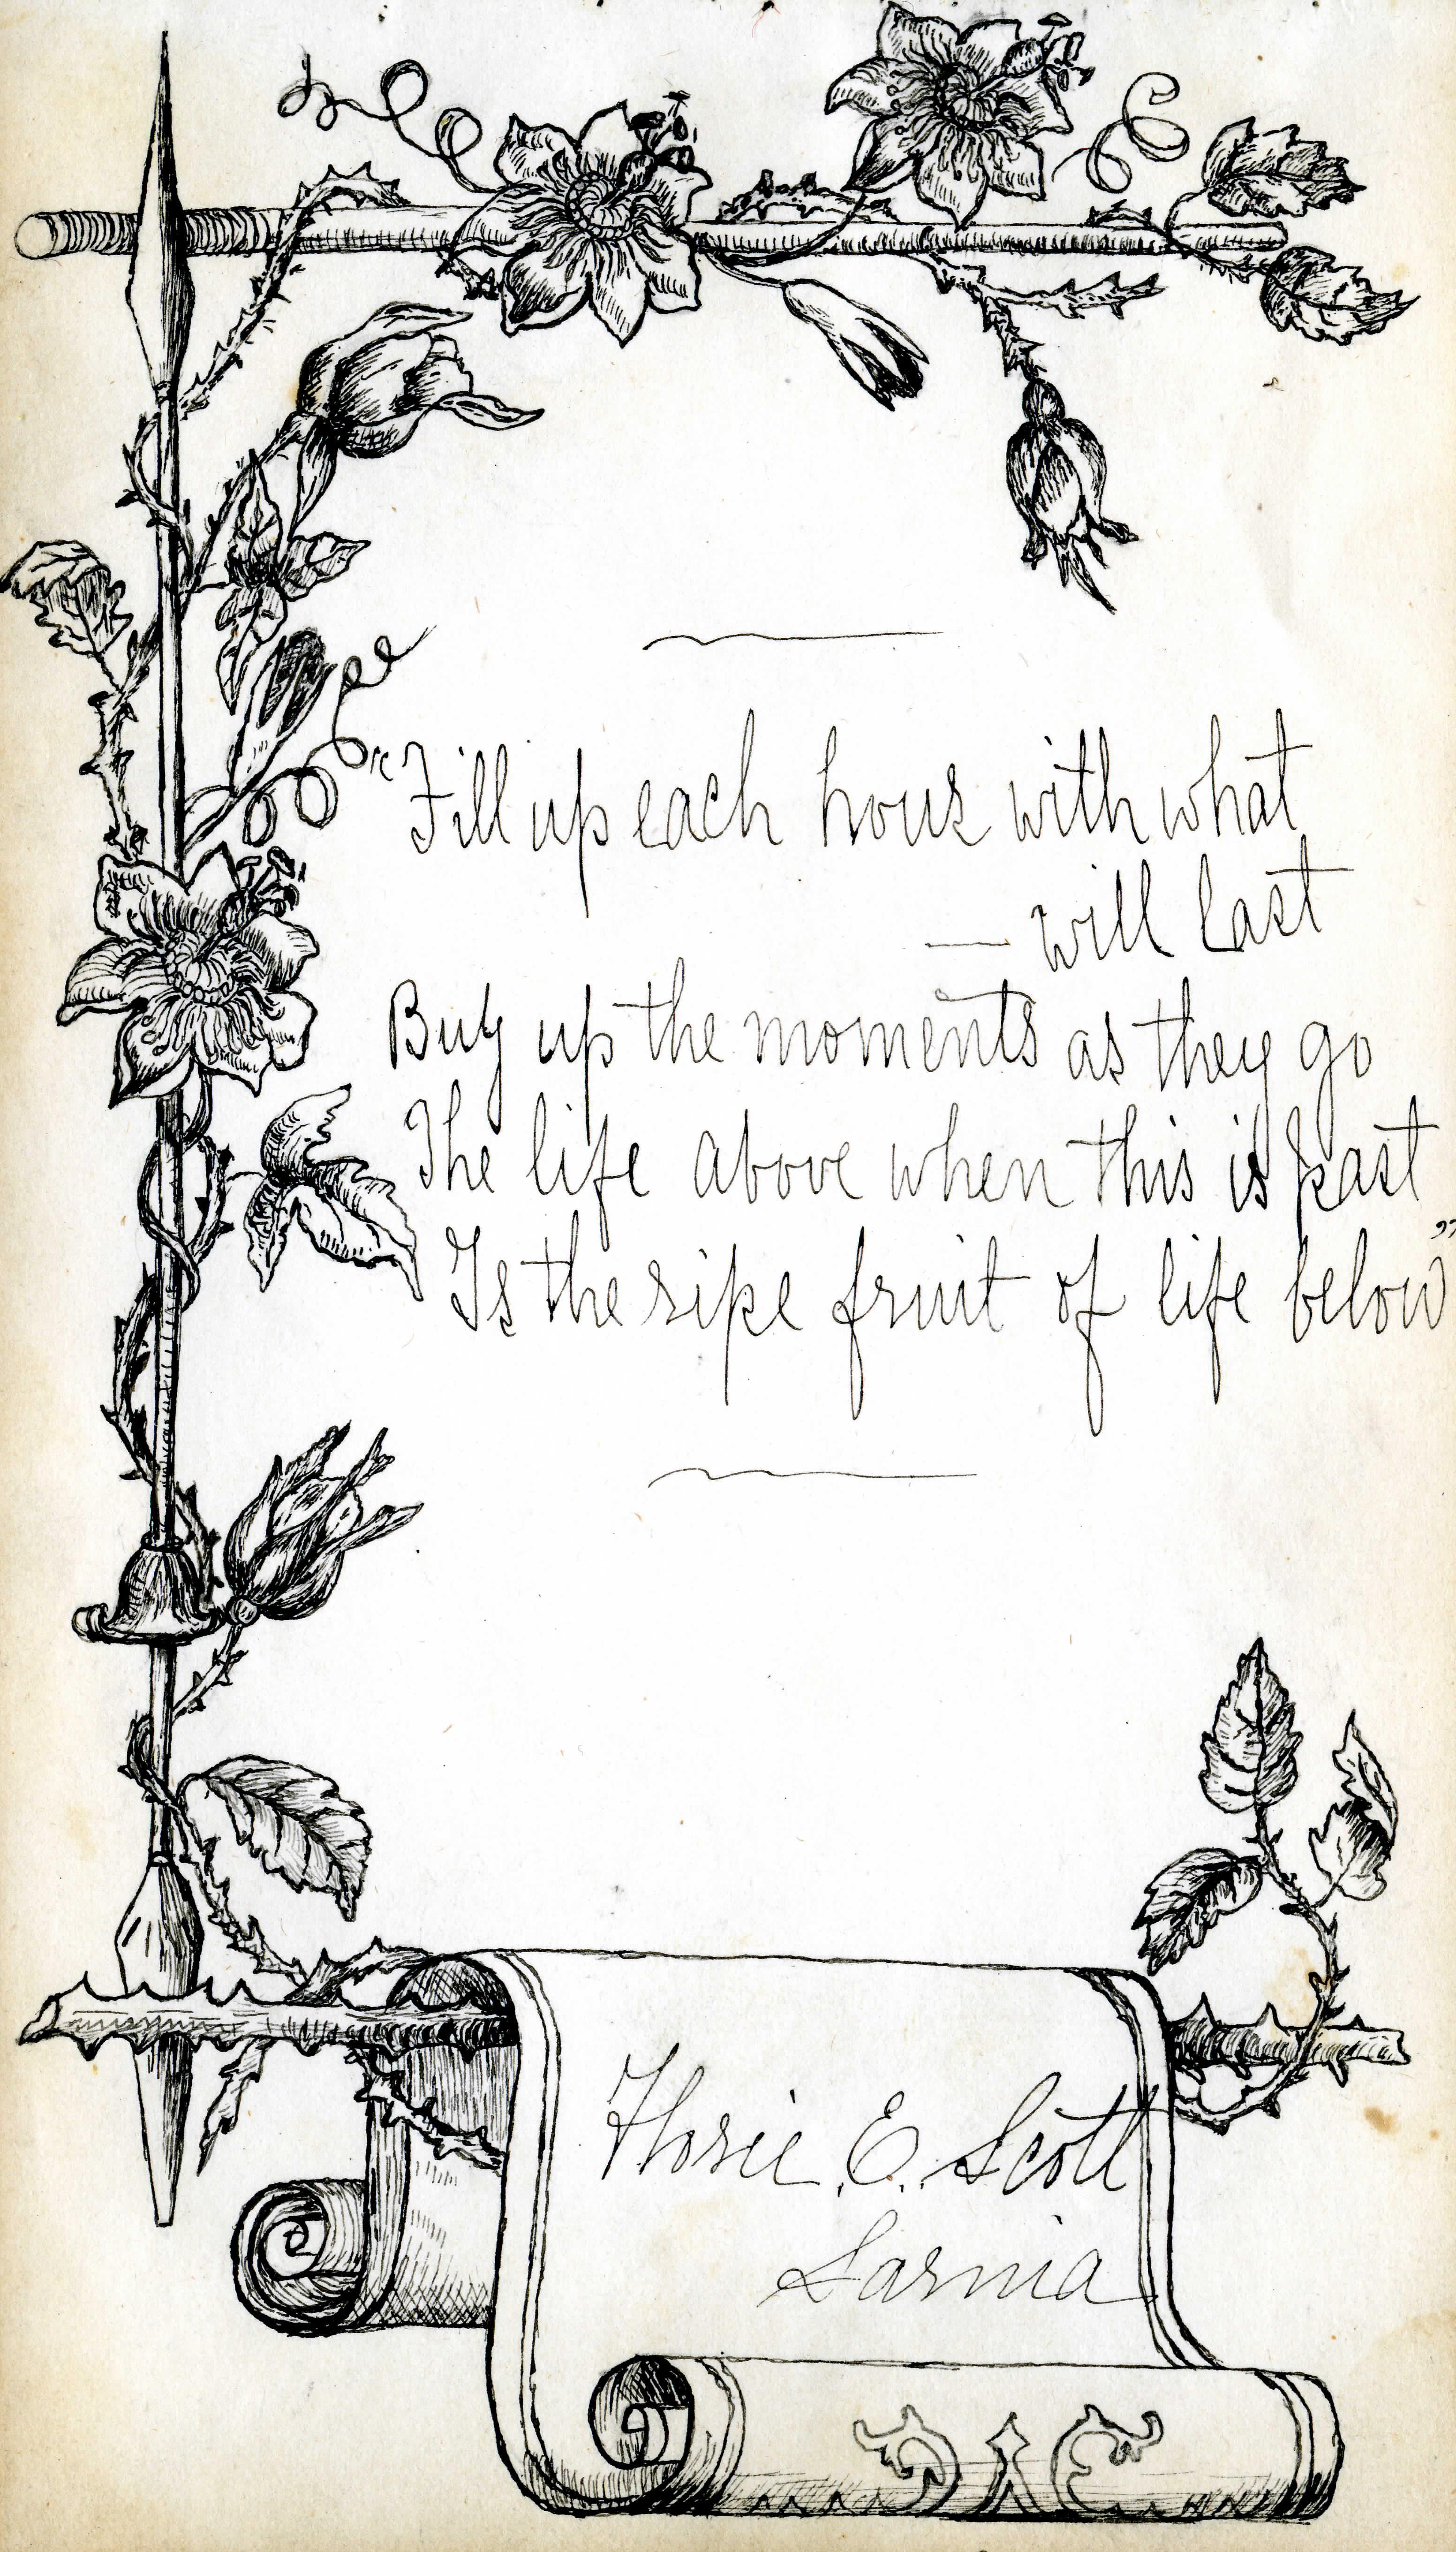 “Fill up each hour with what
— will last
Buy up the moments as they go
The life above when this is past
Is the ripe fruit of life below”
Florie E. Scott
Sarnia